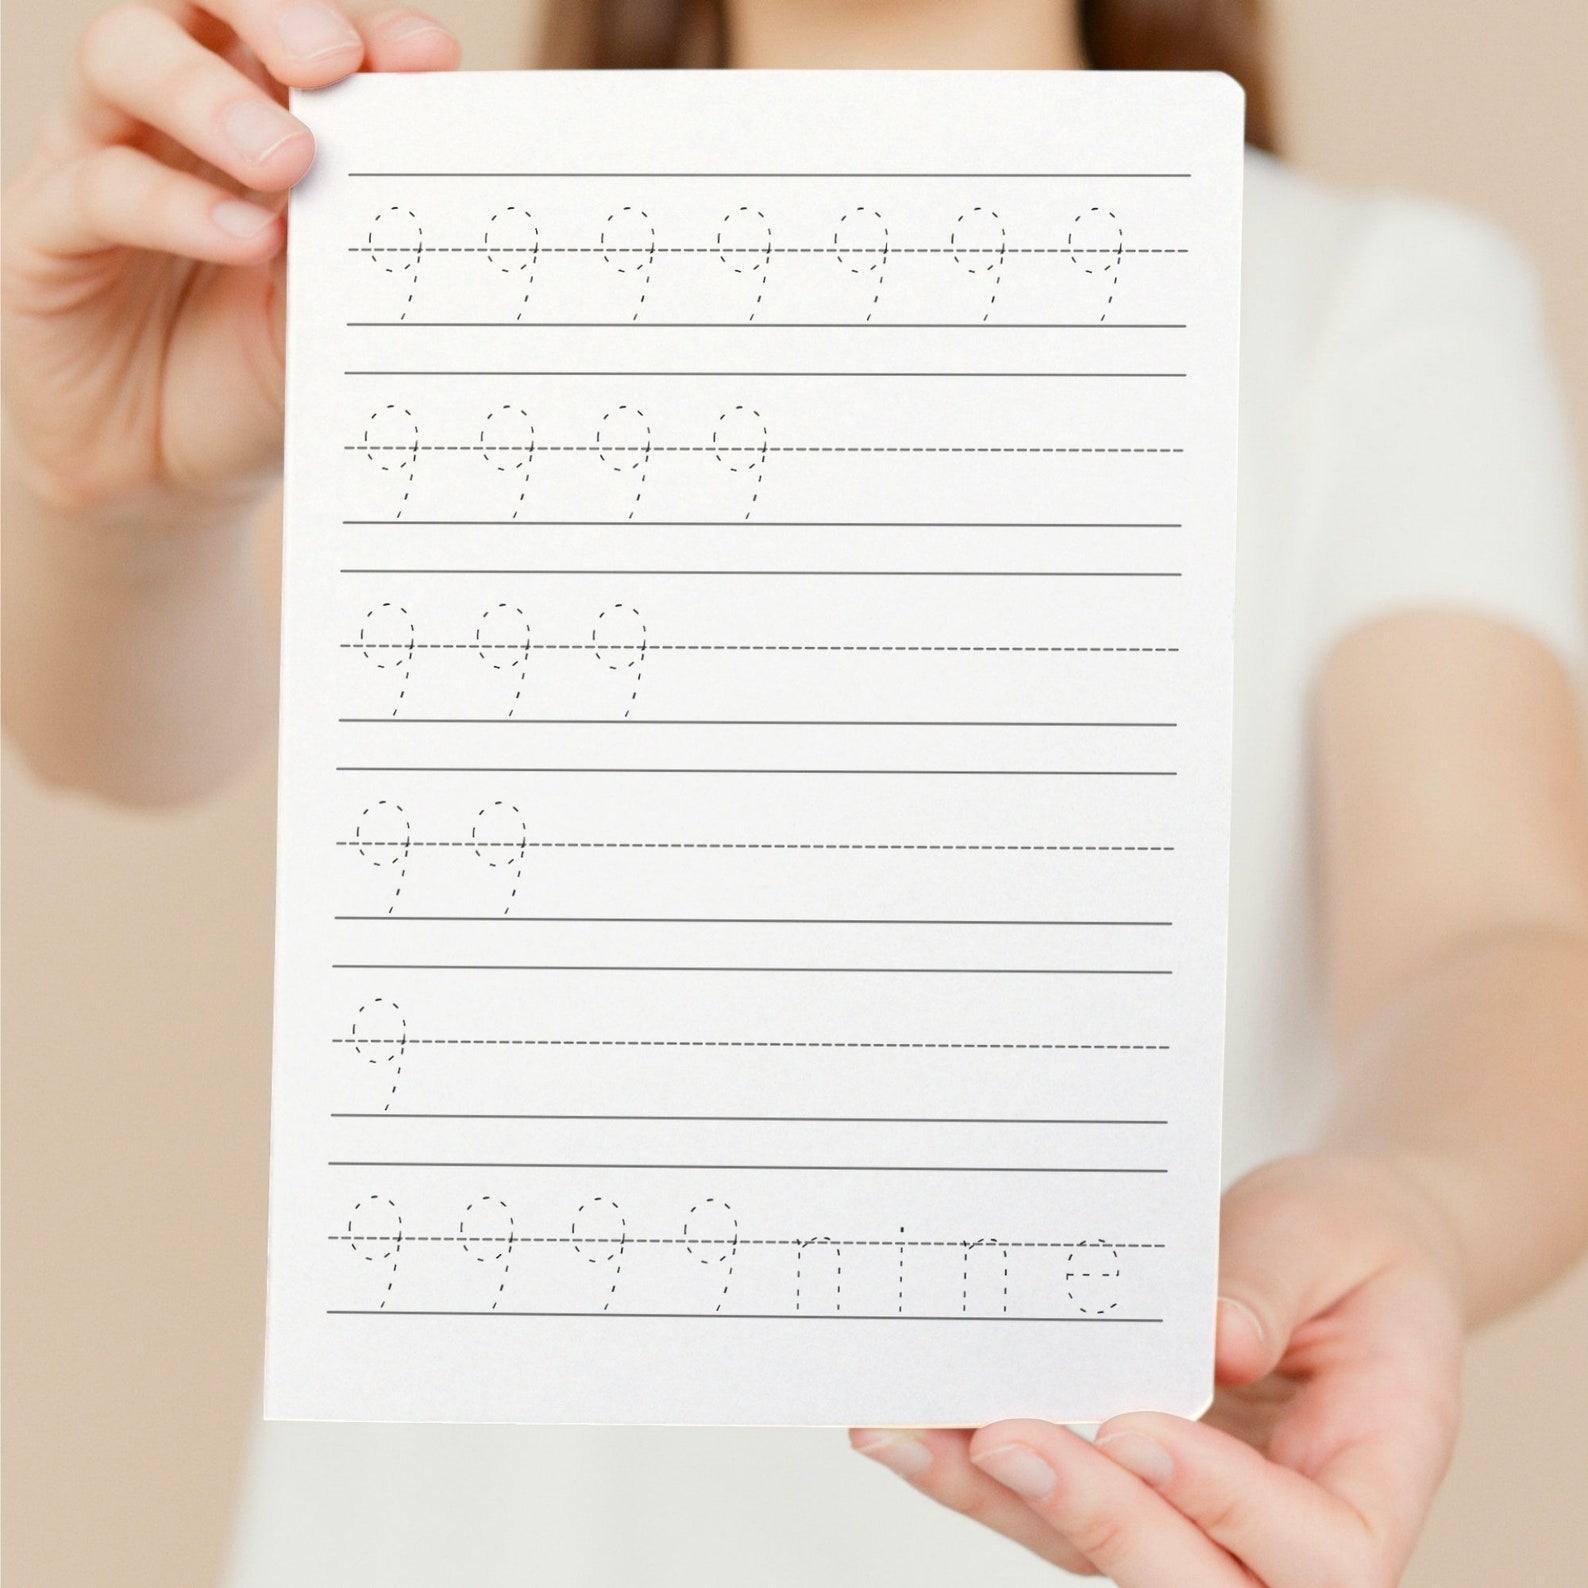 9 9 9 9 9 9 9
9 9 9 9
9 9 9
9 9
9
9 9 9 9 nine